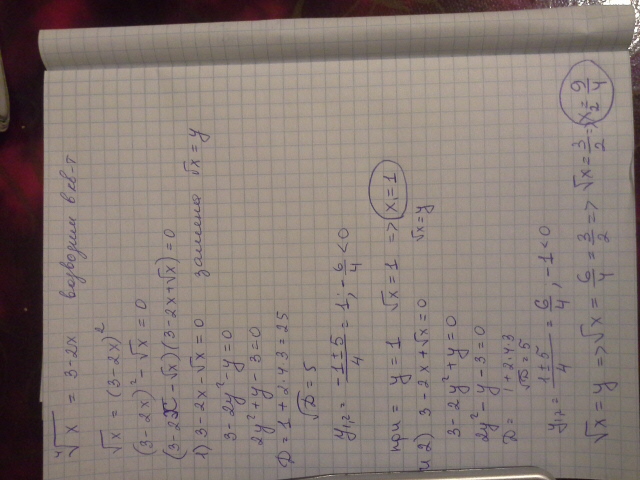 ⁴√x = 3-2x возводим в кв-т
√x = (3-2x)²
(3-2x)² - √x = 0
(3-2x - √x)(3-2x+√x) = 0
1) 3-2x-√x = 0 замена √x = y
3-2y²-y = 0
2y²+y-3=0
D = 1+2·4·3 = 25
√D = 5
y₁,₂ = (-1±5)/4 = 1; -6/4 < 0
при = y = 1 √x = 1 => x₁=1
и 2) 3-2x+√x=0 √x=y
3-2y²+y=0
2y²-y-3=0
D = 1+2·4·3
√D=5
y₁,₂ = (1±5)/4 = 6/4, -1<0
√x = y => √x = 6/4 = 3/2 => √x = 3/2 => x₂ = 9/4